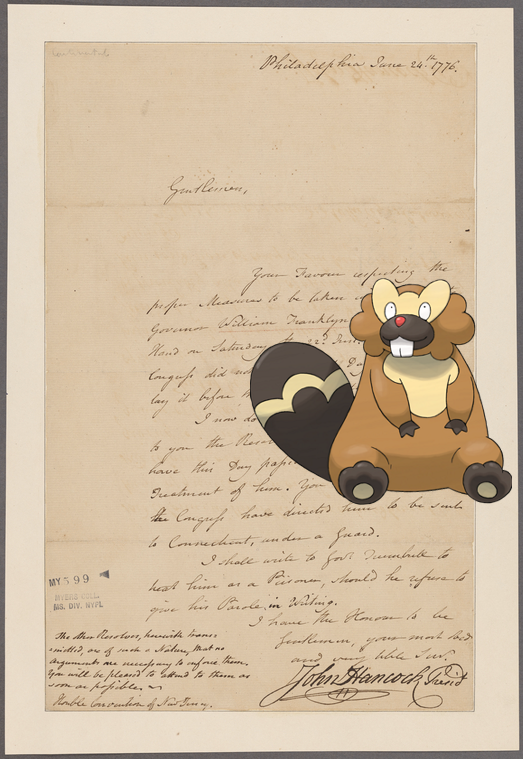 Philadelphia June 24th 1776.
Gentlemen,
Your Favour respecting the
proper Measures to be taken
Governor William Franklyn
Hand on Saturday the 22d
Congress did not
lay it before
I now do
to you the
have this Day
Treatment of him. You
the Congress have directed him to be sent
to Connecticut, under a Guard.
I shall write to Govr Trumbull to
treat him as a Prisoner, should he refuse to
give his Parole, in Writing.
I have the Honour to be
Gentlemen, your most
and very hble Servt
John Hancock Presidt
MY 599
MYERS COLL.
MS. DIV. NYPL
The other Resolves, herewith trans-
mitted, are of such a Nature, that no
arguments are necessary to enforce them.
You will be pleased to attend to them as
soon as possible.
Honble Convention of New Jersey.